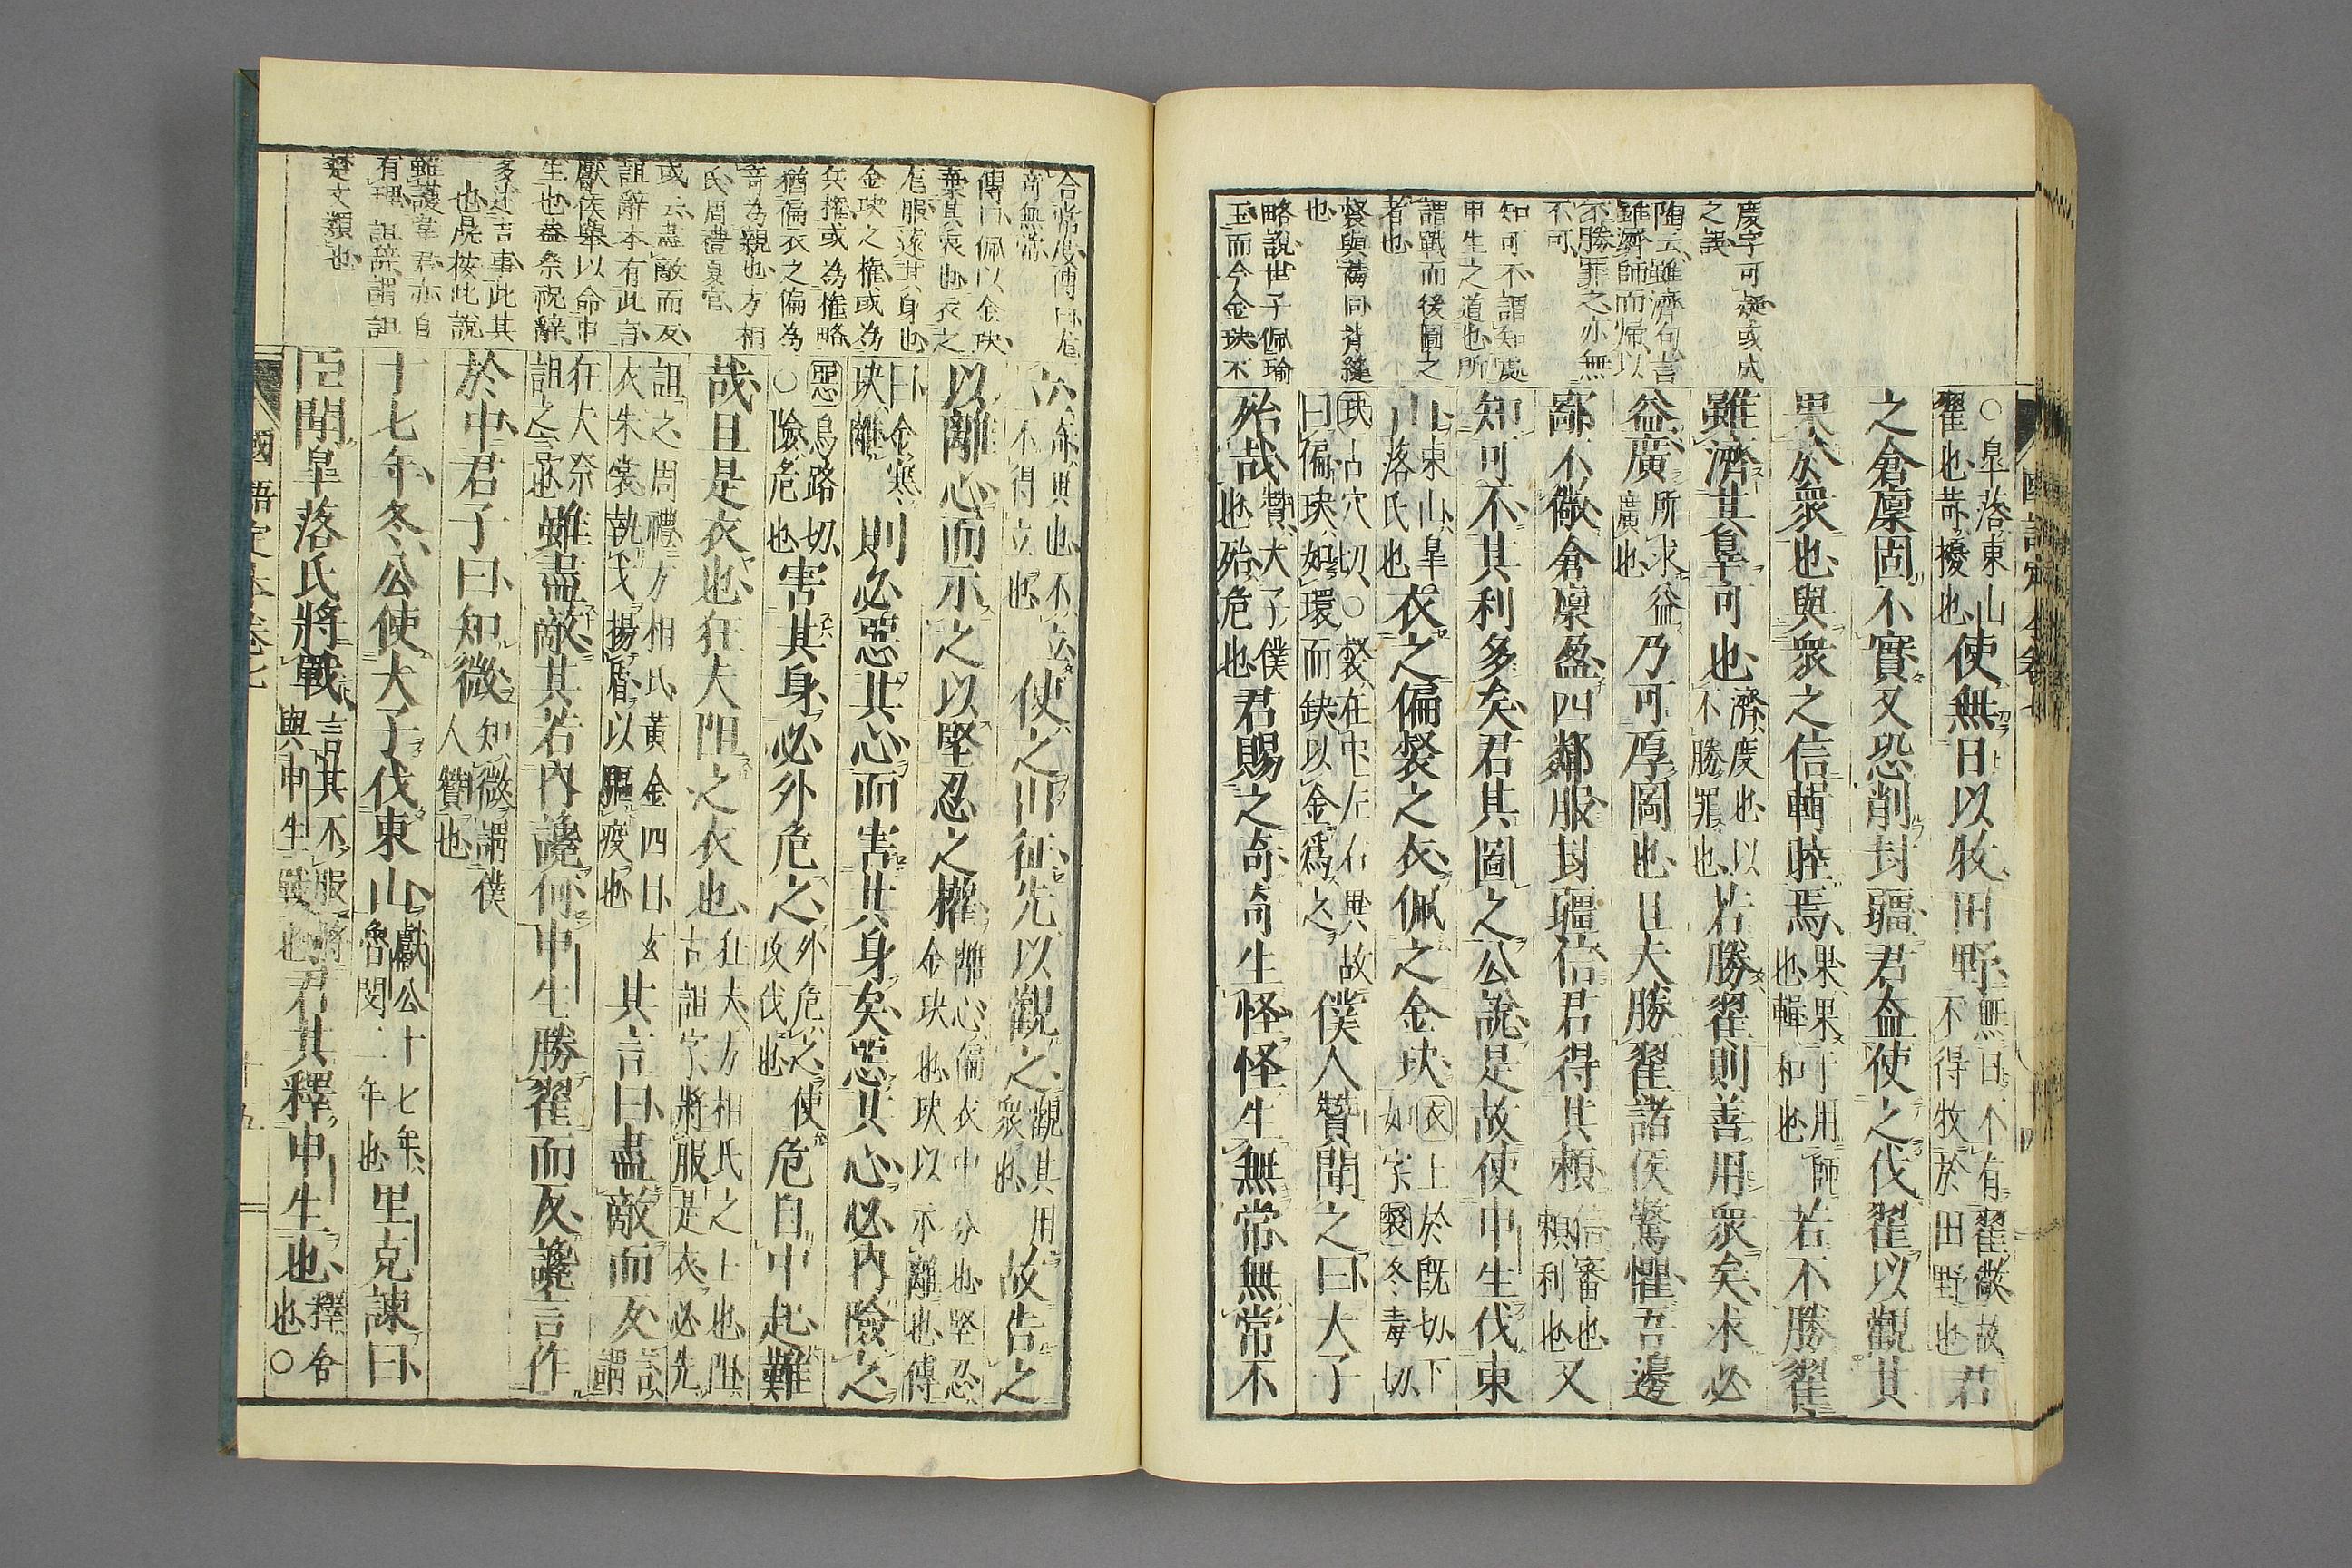 慶字可疑或成
之誤
陶云雖濟句言
雖濟師而歸以
不勝罪之亦無
不可
知可不謂知處
申生之道也所
謂戰而後圖之
者也
也
略說世子佩瑜
玉而今金玦不
國語定本卷七
○皐落東山翟也苛擾也使無日以牧田野無日不有翟儆故不得牧於田野也君
之倉廩固不實又恐削封疆君盍使之伐翟以觀其
果於眾也與眾之信輯睦焉果果于用師也輯和也若不勝翟
雖濟其辠可也濟度也以不勝罪也若勝翟則善用眾矣求必
益廣所求益廣也乃可厚圖也且夫勝翟諸侯驚懼吾邊
鄙不儆倉廩盈四鄰服封疆信君得其賴信審也賴利也又
知可不其利多矣君其圖之公說是故使申生伐東
山東山皐落氏也衣之偏裻之衣佩之金玦衣上於既切下如字裻冬毒切
玦古穴切○裻在中左右異故曰偏玦如環而缺以金爲之僕人贊聞之曰大子
殆哉贊大子僕也殆危也君賜之奇奇生怪怪生無常無常不
合常度傳曰尨
奇無常
傳曰佩以金玦
棄其衷也衣之
尨服遠其身也
金玦之權或為
兵權或為權略
猶偏衣之偏為
奇為親也方相
氏周禮夏官
或云盡敵而反
詛辭本有此言
獻侯舉以命申
生也蓋祭祝辭
多述吉事此其
也虎按此說
雖護韋君亦自
有理 詛辭謂詛
楚文類也
不得立也使之出征先以觀之觀其用眾也故告之
以離心而示之以堅忍之權離心偏衣中分也堅忍金玦也玦以示離也傳
曰金寒玦離則必惡其心而害其身矣惡其心必內險之
惡烏路切○險危也害其身必外危之外危之使攻伐也危自中起難
哉且是衣也狂夫阻之衣也狂夫方相氏之士也阻古詛字將服是衣必先
詛之周禮方相氏黃金四目玄衣朱裳執戈揚盾以驅疫也其言曰盡敵而反言謂
狂夫祭詛之言也雖盡敵其若內讒何申生勝翟而反讒言作
於中君子曰知微知微謂僕人贊也
十七年冬公使大子伐東山獻公十七年魯閔二年也里克諫曰
臣聞皐落氏將戰言其不服將與申生戰也君其釋申生也釋舍也○
國語定本卷七
十五